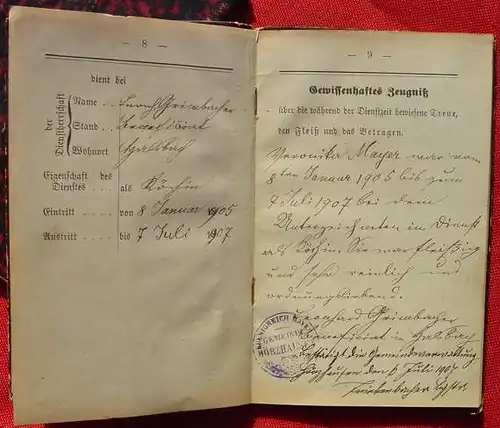 — 8 —
dient bei
der Dienstherrschaft
Name .. Leonh. Grimbacher
Stand .. Beneficiat
Wohnort
Eigenschaft des
Dienstes .. als Köchin
Eintritt .... von 8 Januar 1905
Austritt .... bis 7 Juli 1907
— 9 —
Gewissenhaftes Zeugniß
über die während der Dienstzeit bewiesene Treue,
den Fleiß und das Betragen.
Veronika Mayer war vom
8ten Januar 1905 bis zum
7 Juli 1907 bei dem
Unterzeichneten in Dienst
als Köchin. Sie war fleißig
und sehr reinlich und
ordnungsliebend.
Leonhard Grimbacher
Beneficiat in
bestätigt die Gemeindeverwaltung
Hörzhausen den 6 Juli 1907
KOENIGREICH BAYERN
GEMEINDE
HÖRZHAUSEN